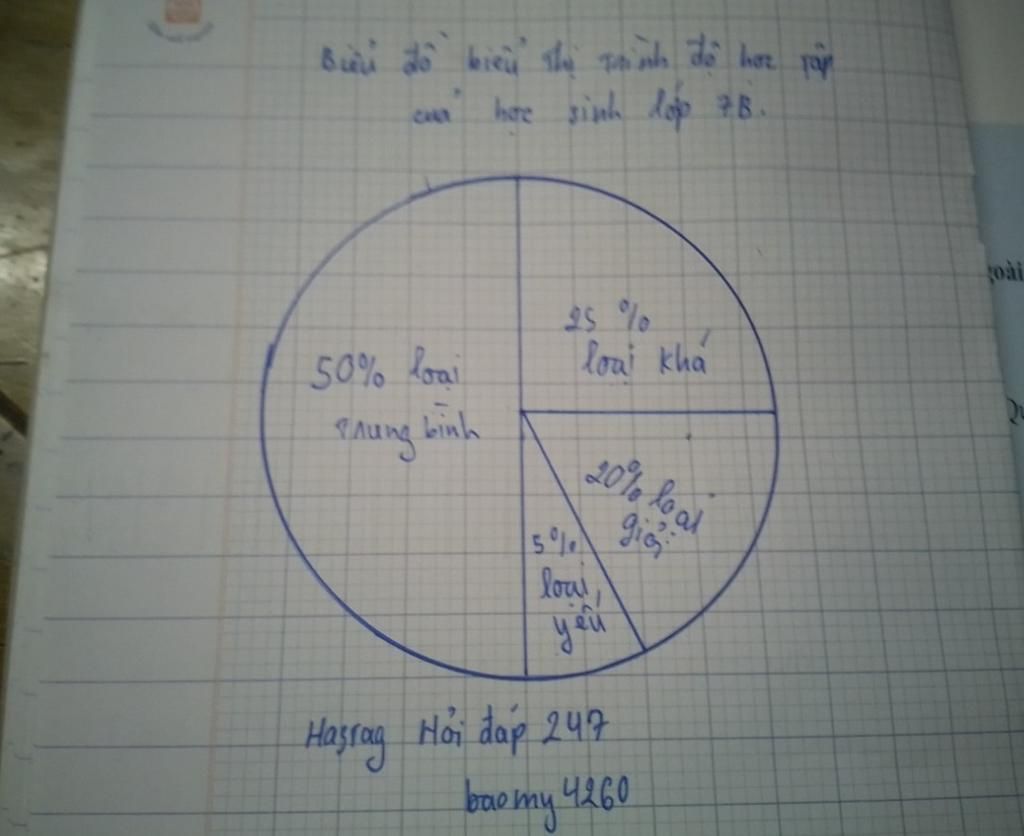 Biểu đồ biểu thị trình độ học tập
của học sinh lớp 7B.
25 %
loại khá
50% loại
trung bình
20% loại
giỏi
5%
loại
yếu
Hasrag Hỏi đáp 247
baomy4260
goài
Qu